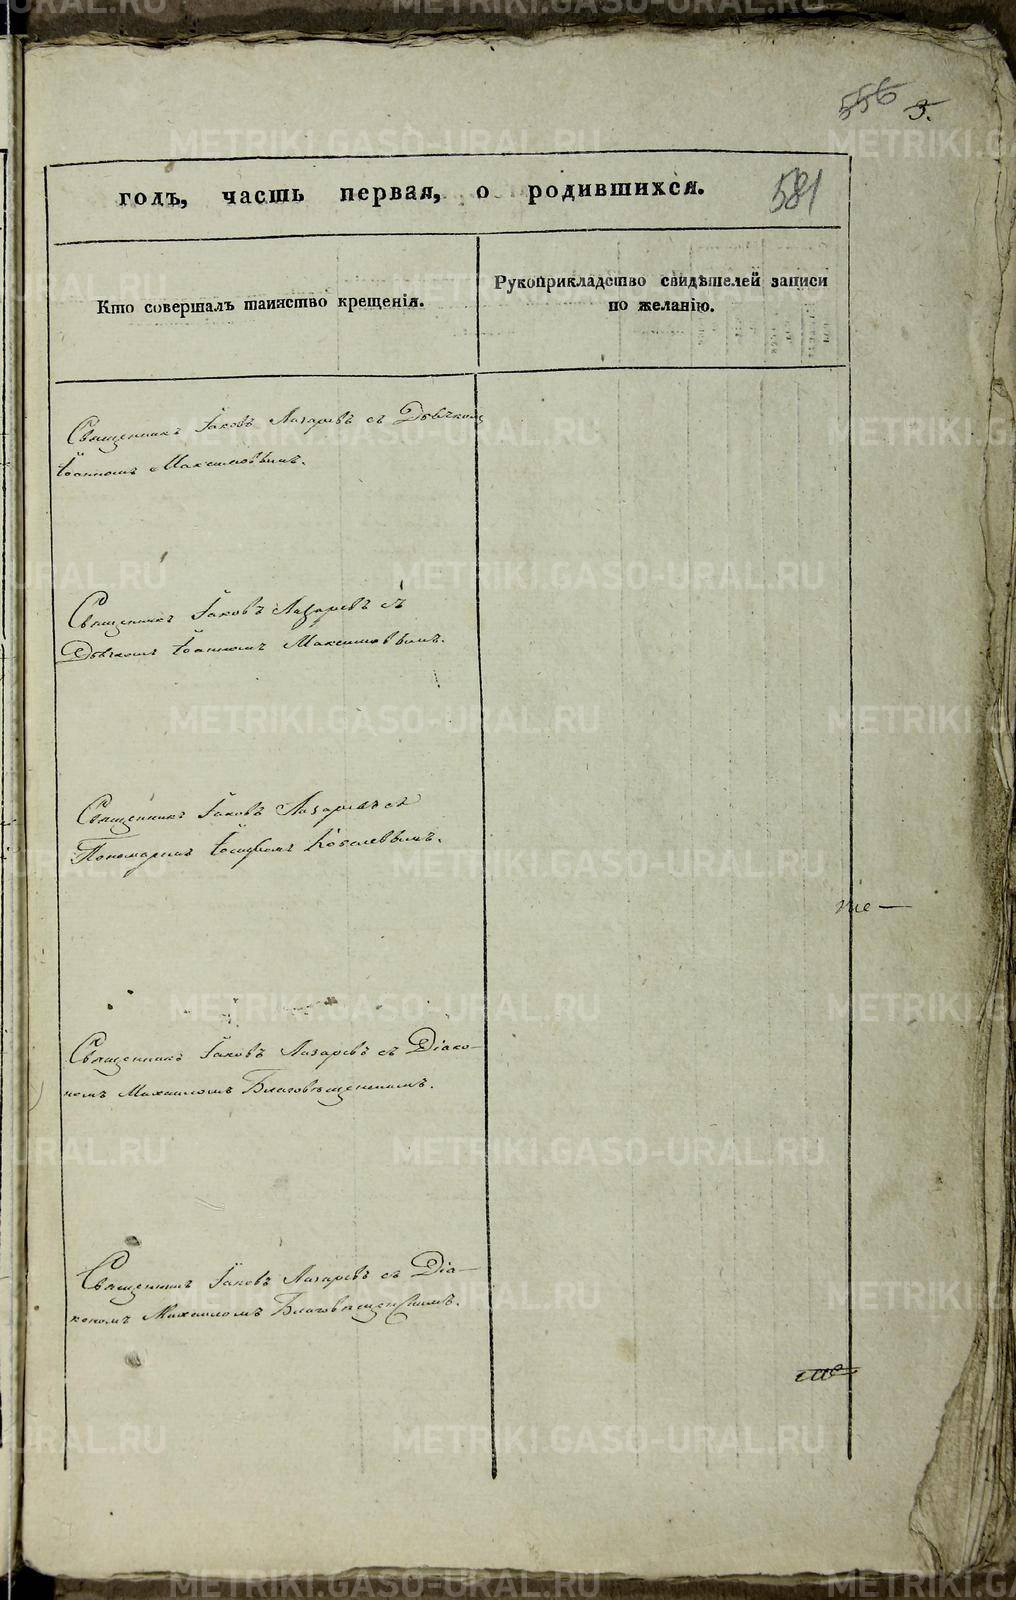 556 5.
годъ, часть первая, о родившихся. 581
Кто совершалъ таинство крещенія.
Рукоприкладство свидѣтелей записи
по желанію.
Священникъ Іаковъ Лазаревъ съ Дьячкомъ
Іоанномъ Максимовымъ.
Священникъ Іаковъ Лазаревъ съ
Дьячкомъ Іоанномъ Максимовымъ.
Священникъ Іаковъ Лазаревъ съ
Пономаремъ Іосифомъ Ковалевымъ.
Священникъ Іаковъ Лазаревъ съ Діако-
номъ Михаиломъ Благовѣщенскимъ.
Священникъ Іаковъ Лазаревъ съ Діа-
кономъ Михаиломъ Благовѣщенскимъ.
METRIKI.GASO-URAL.RU